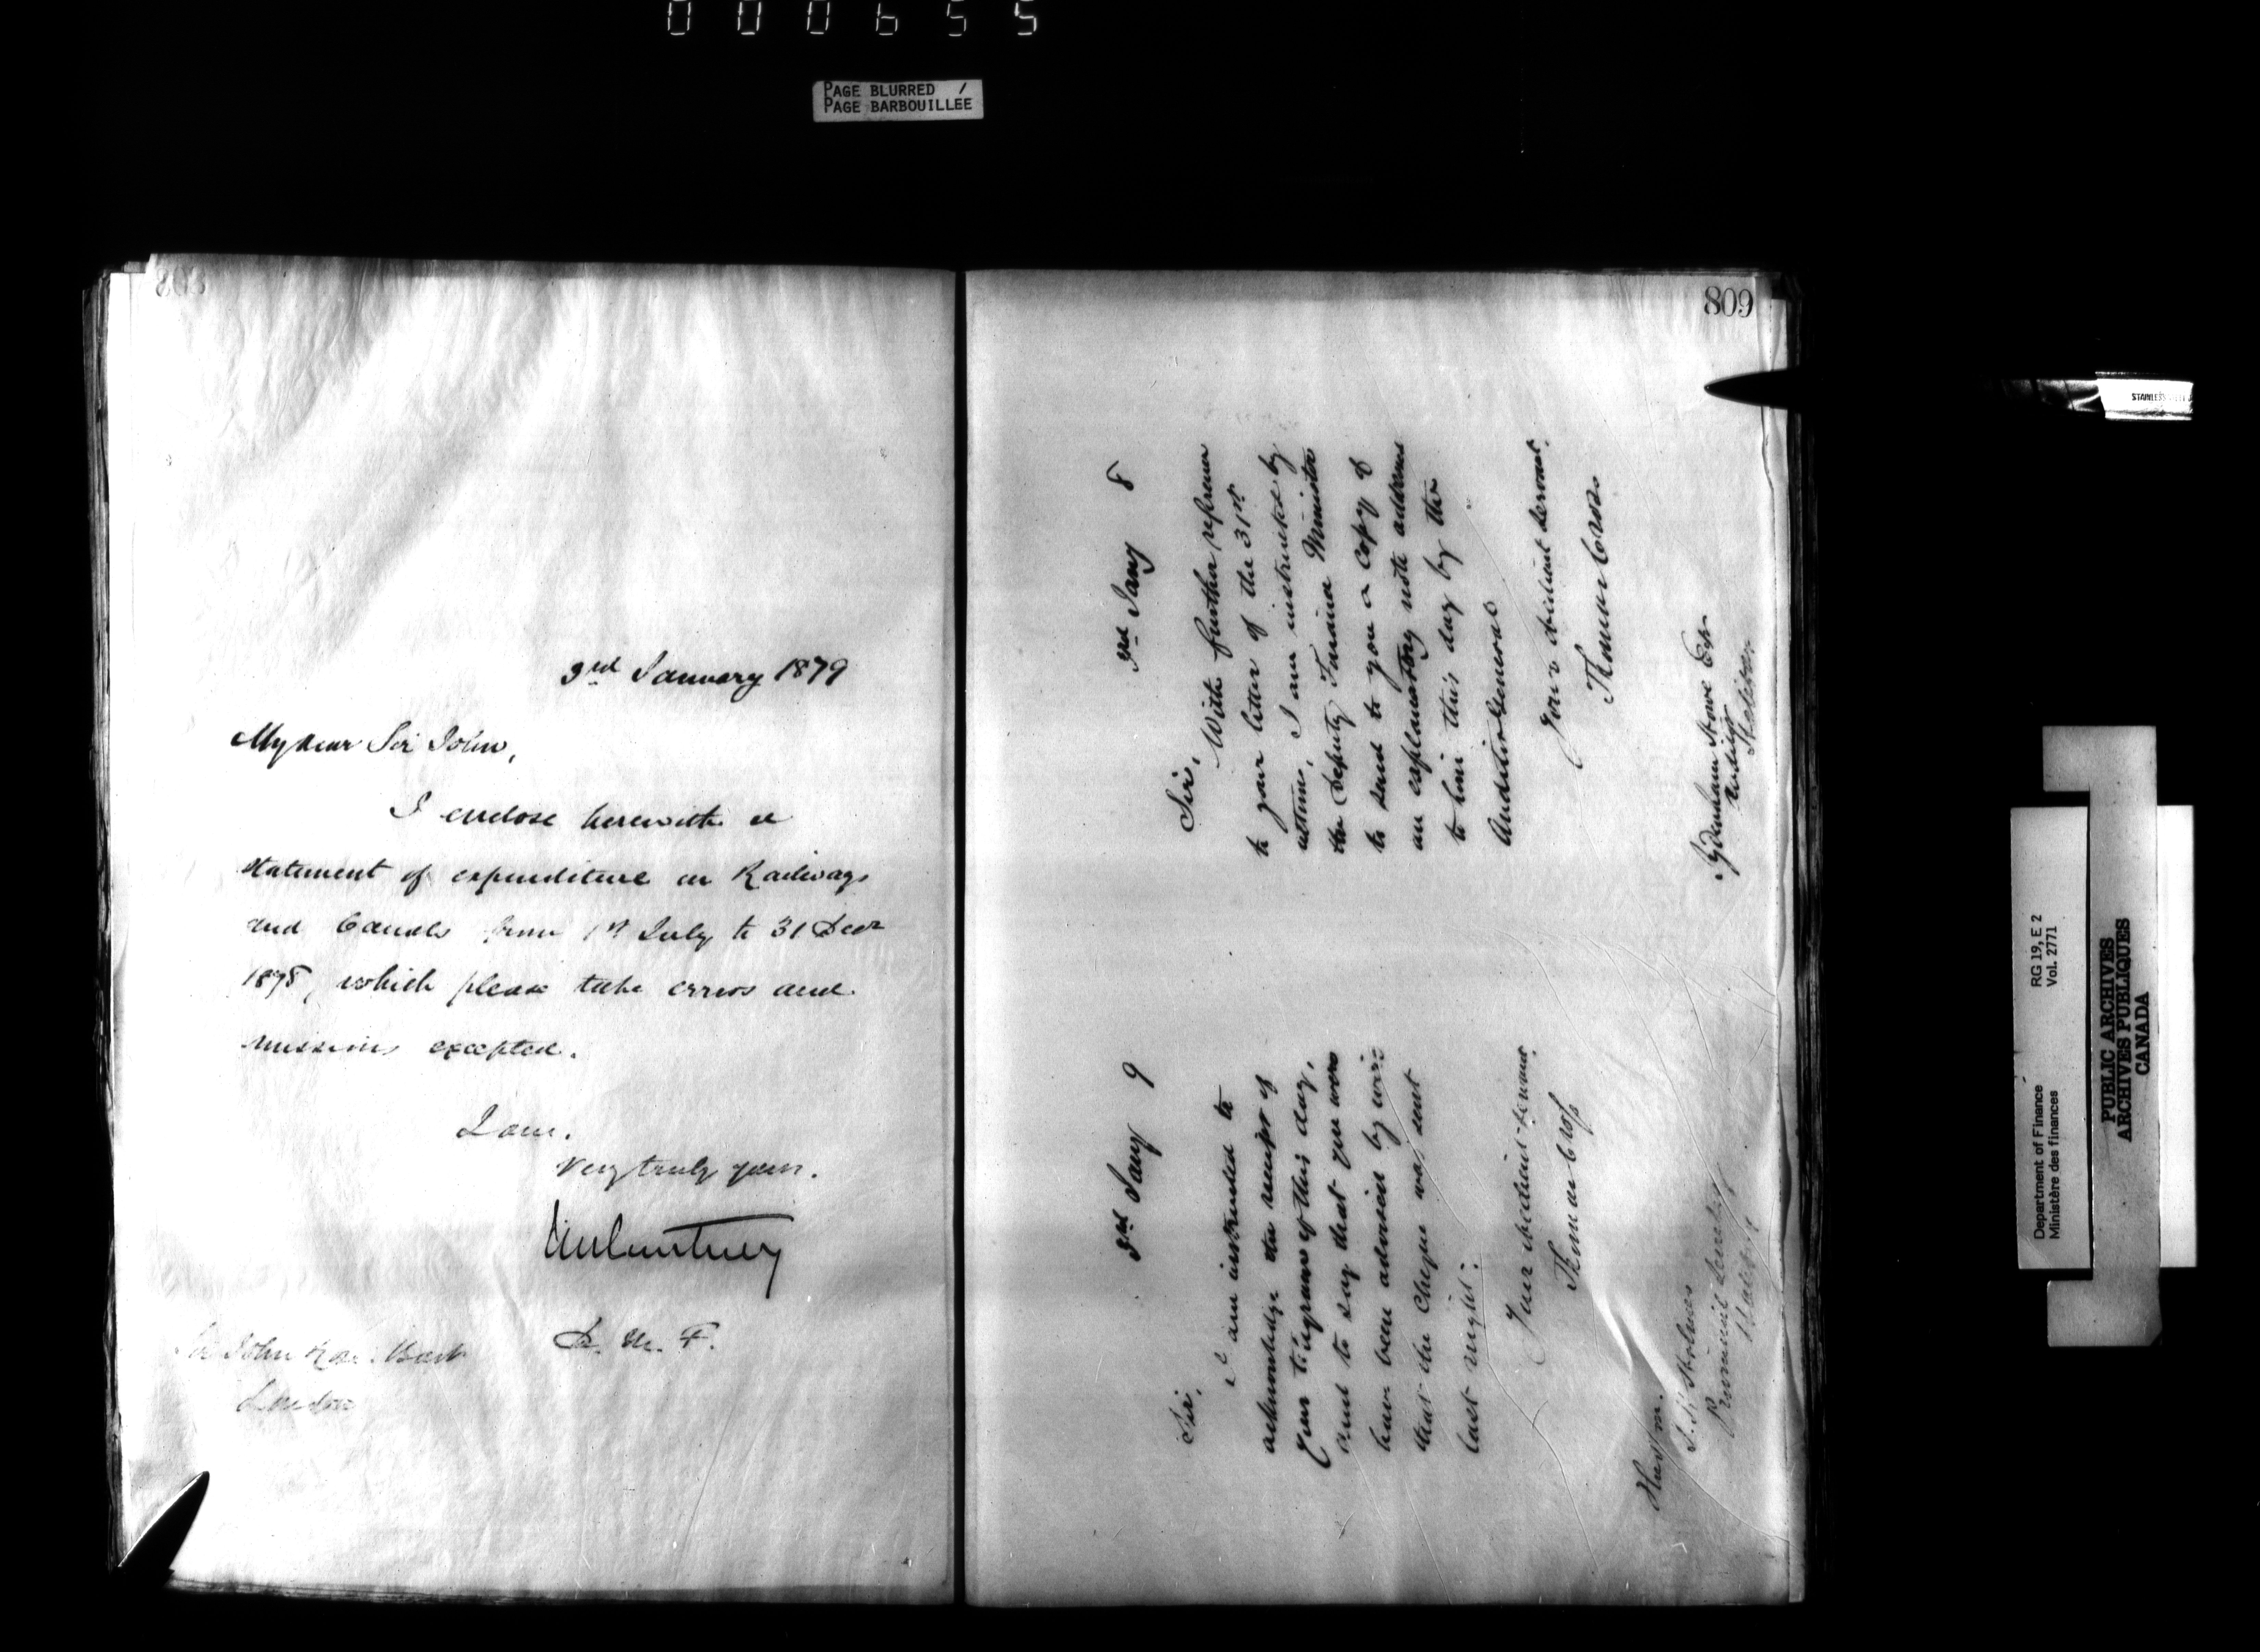 000655
PAGE BLURRED /
PAGE BARBOUILLEE
808
3rd January 1879
My dear Sir John,
I enclose herewith a
statement of expenditure on Railways
and Canals from 1st July to 31 Decr
1878, which please take errors and
omissions excepted.
I am.
Very truly yours.
JMCourtney
D. M. F.
Sir John Rose Bart
London
809
3rd Jany 8
Sir,
With further reference
to your letter of the 31st
ultimo, I am instructed by
the Deputy Finance Minister
to send to you a copy of
an explanatory note addressed
to him this day by the
Auditor General
Your obedient servant.
Thomas Cross
Denham Howe Esq
Auditor
Halifax
3rd Jany 9
Sir,
I am instructed to
acknowledge the receipt of
your telegram of this day,
and to say that you were
have been advised by wire
that the cheque was sent
last night.
Your obedient servant.
Thomas Cross
Honbl
S. H. Holmes
Provincial Secretary
Halifax
STAINLESS
Department of Finance RG 19, E 2
Ministère des finances Vol. 2771
PUBLIC ARCHIVES
ARCHIVES PUBLIQUES
CANADA